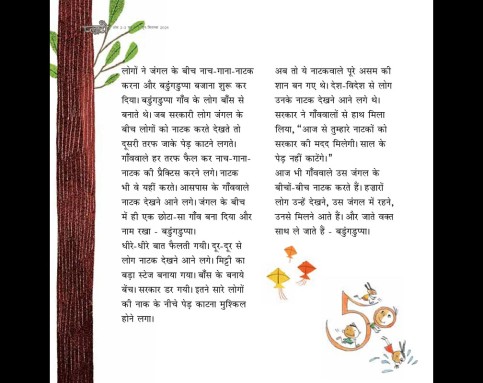 लोगों ने जंगल के बीच नाच-गाना-नाटक
करना और बडुंगडुप्पा बजाना शुरू कर
दिया। बडुंगडुप्पा गाँव के लोग बाँस से
बनाते थे। जब सरकारी लोग जंगल के
बीच लोगों को नाटक करते देखते तो
दूसरी तरफ जाके पेड़ काटने लगते।
गाँववाले हर तरफ फैल कर नाच-गाना-
नाटक की प्रैक्टिस करने लगे। नाटक
भी वे यहीं करते। आसपास के गाँववाले
नाटक देखने आने लगे। जंगल के बीच
में ही एक छोटा-सा गाँव बना दिया और
नाम रखा - बडुंगडुप्पा।
धीरे-धीरे बात फैलती गयी। दूर-दूर से
लोग नाटक देखने आने लगे। मिट्टी का
बड़ा स्टेज बनाया गया। बाँस के बनाये
बेंच। सरकार डर गयी। इतने सारे लोगों
की नाक के नीचे पेड़ काटना मुश्किल
होने लगा।
अब तो ये नाटकवाले पूरे असम की
शान बन गए थे। देश-विदेश से लोग
उनके नाटक देखने आने लगे थे।
सरकार ने गाँववालों से हाथ मिला
लिया, “आज से तुम्हारे नाटकों को
सरकार की मदद मिलेगी। साल के
पेड़ नहीं काटेंगे।”
आज भी गाँववाले उस जंगल के
बीचों-बीच नाटक करते हैं। हज़ारों
लोग उन्हें देखने, उस जंगल में रहने,
उनसे मिलने आते हैं। और जाते वक्त
साथ ले जाते हैं - बडुंगडुप्पा।
50